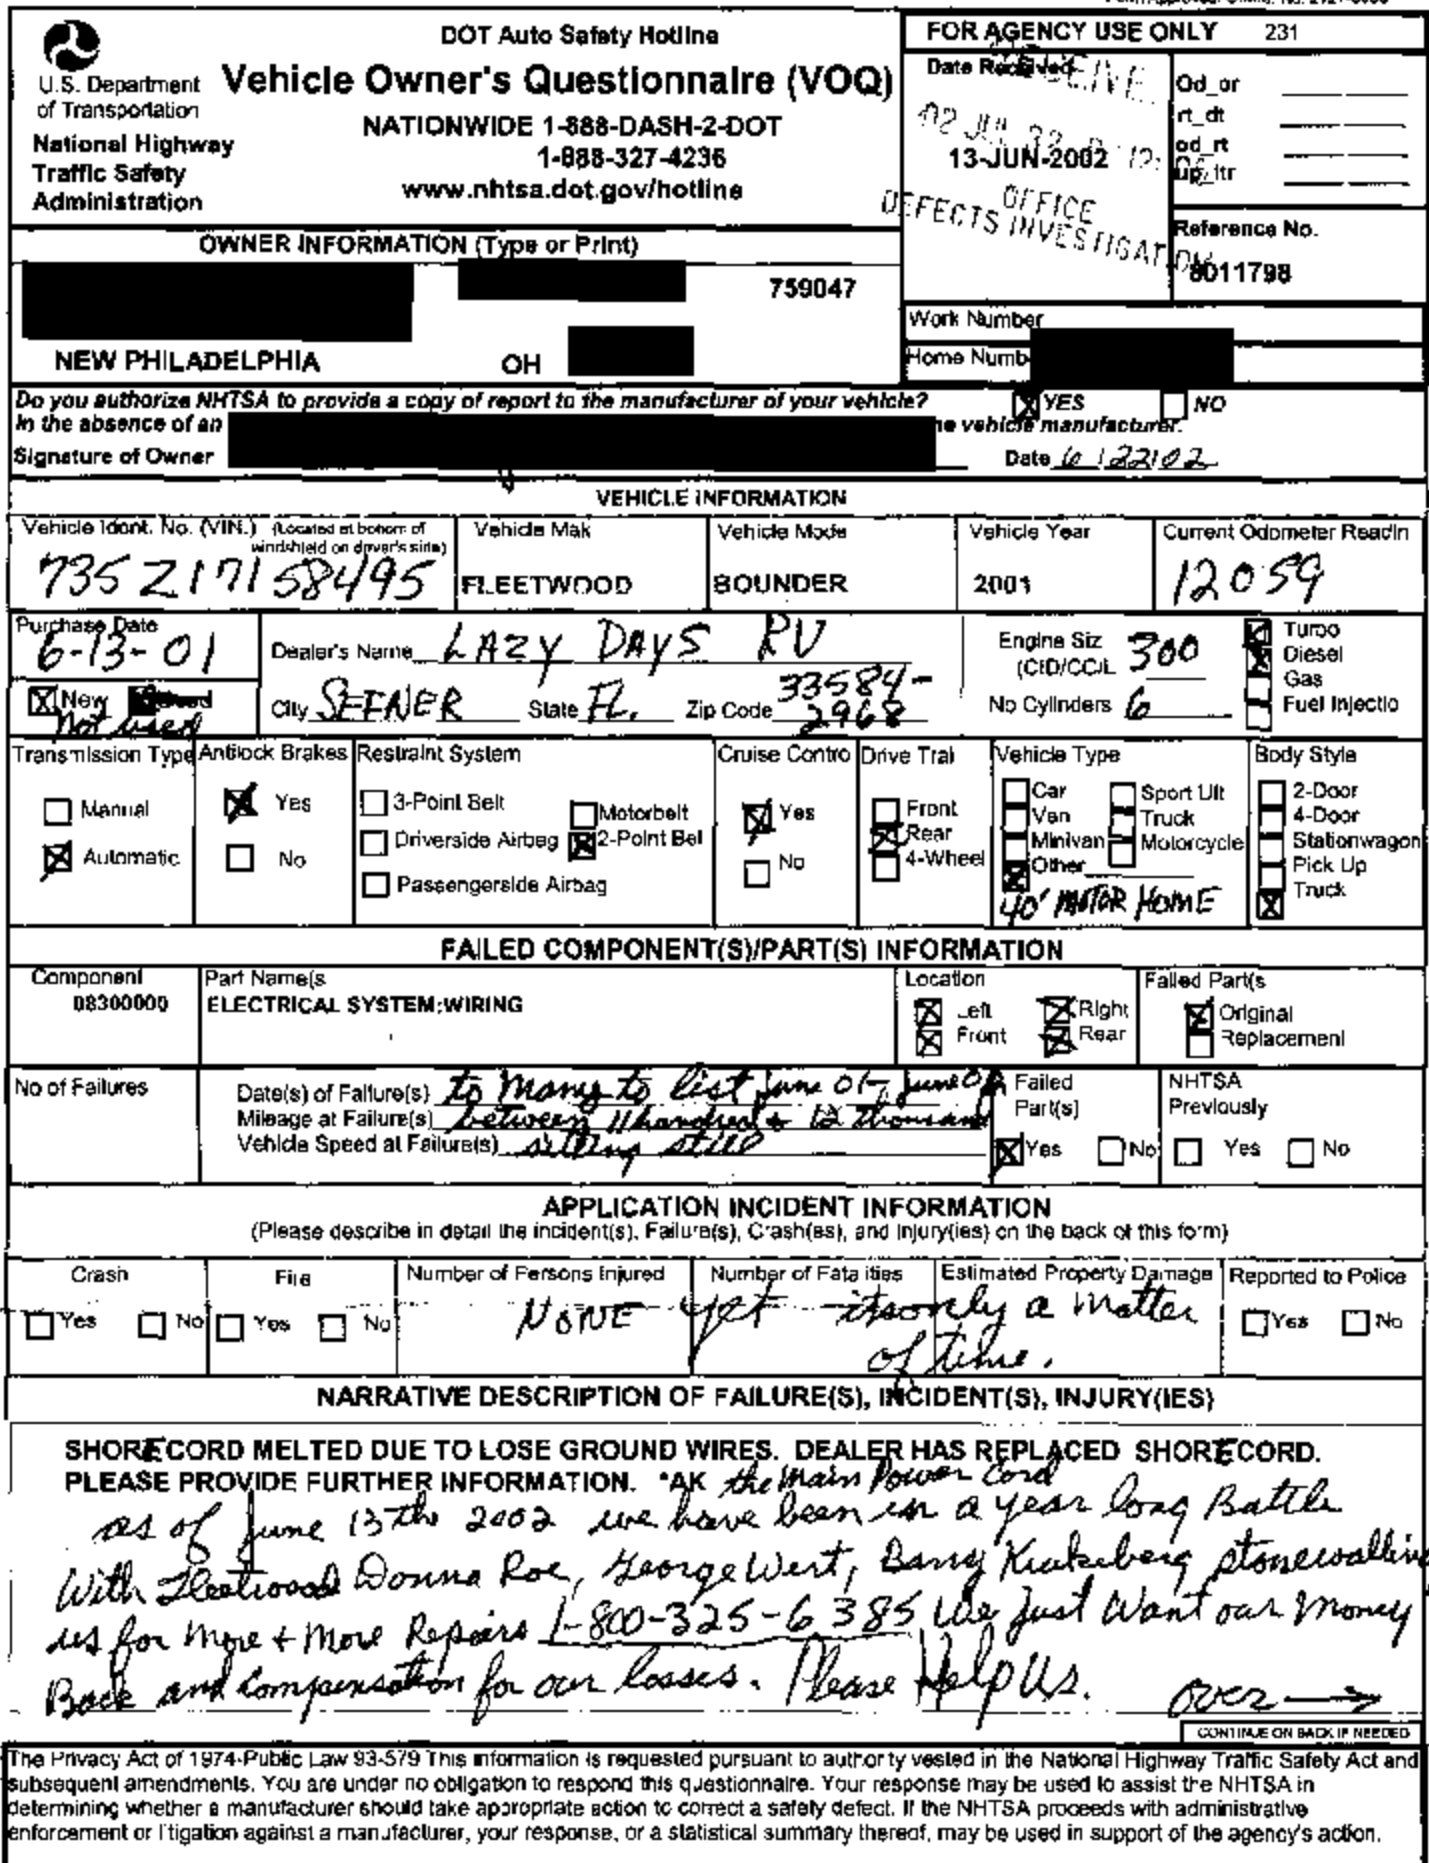 DOT Auto Safety Hotline
Vehicle Owner's Questionnaire (VOQ)
NATIONWIDE 1-888-DASH-2-DOT
1-888-327-4236
www.nhtsa.dot.gov/hotline
U.S. Department
of Transportation
National Highway
Traffic Safety
Administration
FOR AGENCY USE ONLY 231
Date Received
13-JUN-2002
OFFICE
DEFECTS INVESTIGATION
Od_or
rt_dt
od_rt
up_ltr
Reference No.
8011798
OWNER INFORMATION (Type or Print)
759047
NEW PHILADELPHIA OH
Work Number
Home Numb
Do you authorize NHTSA to provide a copy of report to the manufacturer of your vehicle? YES NO
In the absence of an he vehicle manufacturer.
Signature of Owner Date 6/22/02
VEHICLE INFORMATION
Vehicle Ident. No. (VIN.) (Located at bottom of windshield on driver's side)
Vehicle Mak Vehicle Mode Vehicle Year Current Odometer Readin
735217158495 FLEETWOOD BOUNDER 2001 12059
Purchase Date
6-13-01
New
Not used
Dealer's Name LAZY DAYS RV
City SEFNER State FL. Zip Code 33584-2968
Engine Siz (CID/CC/L 300
No Cylinders 6
Turbo
Diesel
Gas
Fuel Injectio
Transmission Type Antilock Brakes Restraint System Cruise Contro Drive Trai Vehicle Type Body Style
Manual
Automatic
Yes
No
3-Point Belt
Driverside Airbag
Passengerside Airbag
Motorbelt
2-Point Bel
Yes
No
Front
Rear
4-Wheel
Car
Van
Minivan
Other
Sport Ult
Truck
Motorcycle
40' MOTOR HOME
2-Door
4-Door
Stationwagon
Pick Up
Truck
FAILED COMPONENT(S)/PART(S) INFORMATION
Component
08300000
Part Name(s
ELECTRICAL SYSTEM:WIRING
Location
Left Right
Front Rear
Failed Part(s
Original
Replacement
No of Failures
Date(s) of Failure(s) to many to list June 01- June 02
Mileage at Failure(s) between 11 hundred + 12 thousand
Vehicle Speed at Failure(s) sitting still
Failed Part(s)
Yes No
NHTSA Previously
Yes No
APPLICATION INCIDENT INFORMATION
(Please describe in detail the incident(s), Failure(s), Crash(es), and Injury(ies) on the back of this form)
Crash Fire Number of Persons Injured Number of Fatalities Estimated Property Damage Reported to Police
Yes No Yes No NONE yet itsonly a matter Yes No
of time.
NARRATIVE DESCRIPTION OF FAILURE(S), INCIDENT(S), INJURY(IES)
SHORECORD MELTED DUE TO LOSE GROUND WIRES. DEALER HAS REPLACED SHORECORD.
PLEASE PROVIDE FURTHER INFORMATION. *AK the Main Power Cord
as of June 13th 2002 we have been in a year long Battle
With Fleetwood Donna Roe, George Wert, stonewalling
us for More + More Repairs 1-800-325-6385 We Just Want our Money
Back and Compensation for our losses. Please Help Us. over
CONTINUE ON BACK IF NEEDED
The Privacy Act of 1974-Public Law 93-579 This information is requested pursuant to authority vested in the National Highway Traffic Safety Act and
subsequent amendments. You are under no obligation to respond this questionnaire. Your response may be used to assist the NHTSA in
determining whether a manufacturer should take appropriate action to correct a safety defect. If the NHTSA proceeds with administrative
enforcement or litigation against a manufacturer, your response, or a statistical summary thereof, may be used in support of the agency's action.